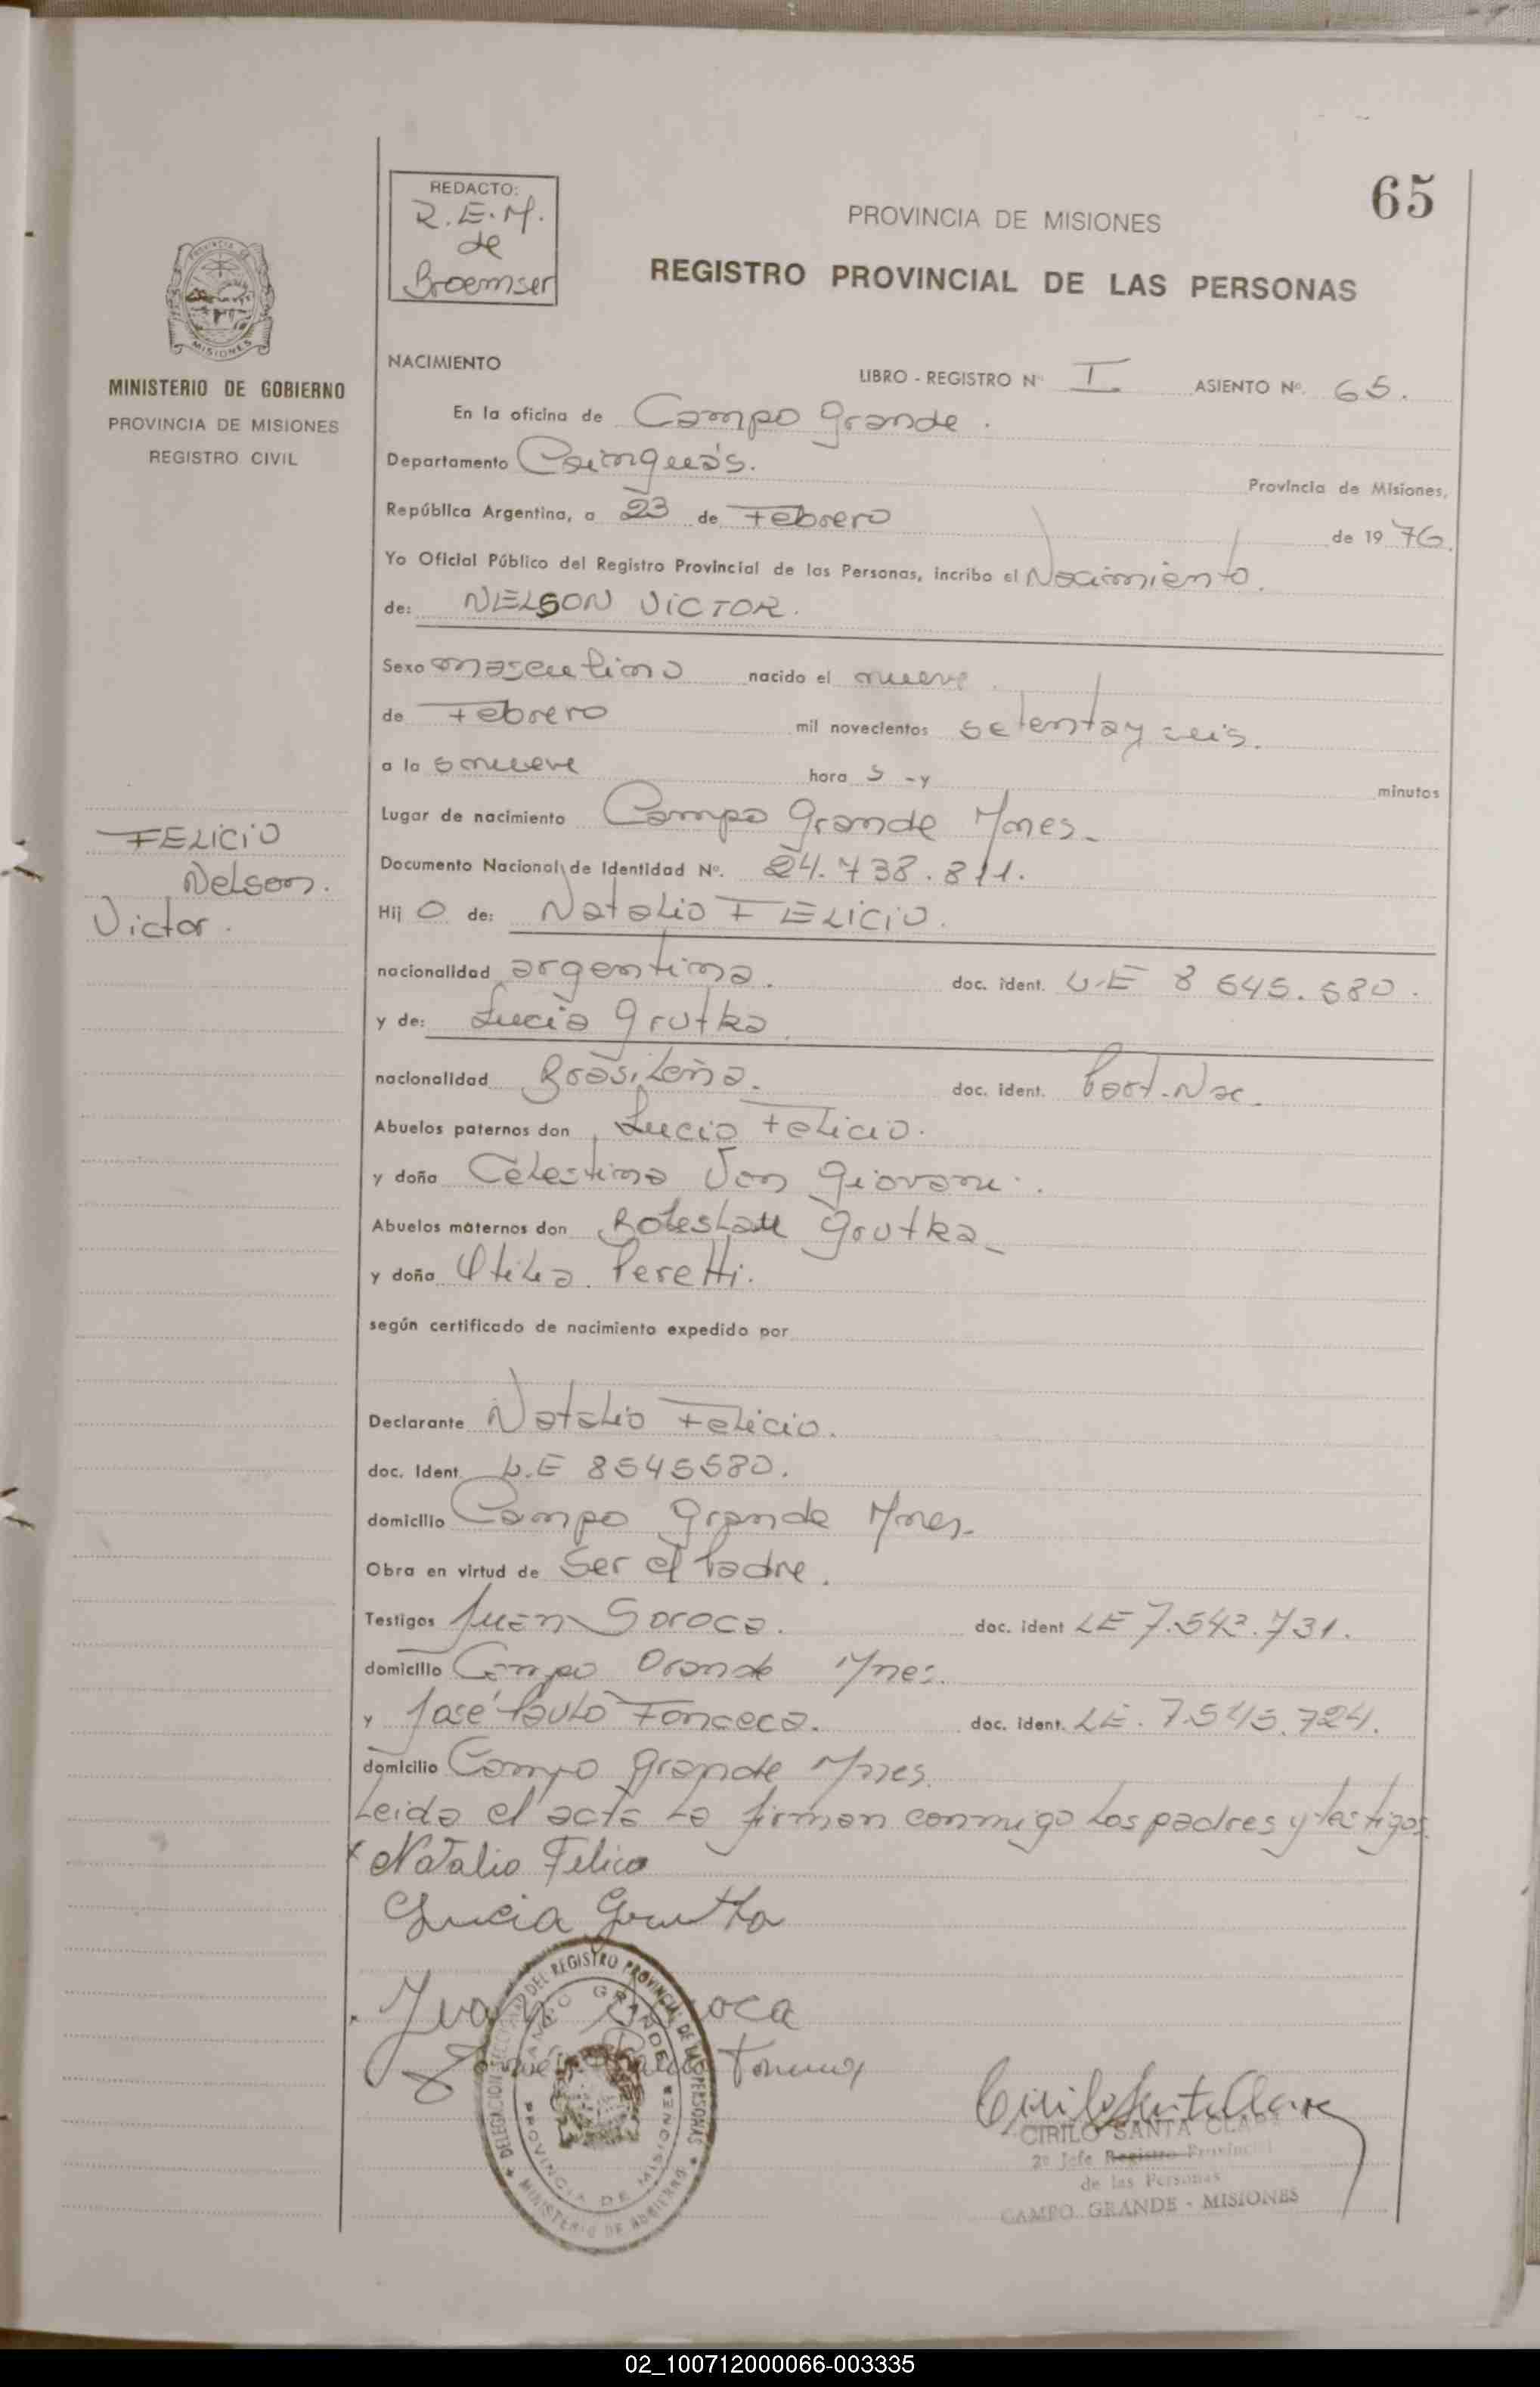 65
REDACTO:
R.E.M.
de
Broemser
PROVINCIA DE MISIONES
REGISTRO PROVINCIAL DE LAS PERSONAS
PROVINCIA DE
MISIONES
MINISTERIO DE GOBIERNO
PROVINCIA DE MISIONES
REGISTRO CIVIL
NACIMIENTO
LIBRO - REGISTRO Nº I ASIENTO Nº. 65.
En la oficina de Campo Grande.
Departamento Cainguás.
Provincia de Misiones,
República Argentina, a 23 de Febrero de 1976.
Yo Oficial Público del Registro Provincial de las Personas, incribo el Nacimiento.
de: NELSON VICTOR.
Sexo masculino nacido el nueve
de Febrero mil novecientos setentay seis.
a la s nueve hora s - y minutos
Lugar de nacimiento Campo Grande Mnes-
FELICIO
Nelson.
Victor.
Documento Nacional de Identidad Nº. 24.738.811.
Hij o de: Natalio FELICIO.
nacionalidad argentina. doc. ident. L.E 8 545.580.
y de: Lucia Grutka
nacionalidad Brasileña. doc. ident. Part. Nac.
Abuelos paternos don Lucio Felicio.
y doña Celestina Von Giovani.
Abuelos maternos don Boleslau Grutka-
y doña Otilia Peretti.
según certificado de nacimiento expedido por
Declarante Natalio Felicio.
doc. Ident. L.E 8545580.
domicilio Campo Grande Mnes-
Obra en virtud de Ser el Padre.
Testigos Juan Soroca. doc. ident LE 7.542.731.
domicilio Campo Grande Mnes.
y José Paulo Fonceca. doc. ident. LE. 7.545.724.
domicilio Campo Grande Mnes.
Leida el acta La firman conmigo Los padres y testigos.
x Natalio Felico
Lucia Grutka
DELEGACION DEL REGISTRO PROVINCIAL DE LAS PERSONAS
CAMPO GRANDE
PROVINCIA DE MISIONES
MINISTERIO DE GOBIERNO
Cirilo Santa Clara
CIRILO SANTA CLARA
2º Jefe Registro Provincial
de las Personas
CAMPO GRANDE - MISIONES
02_100712000066-003335